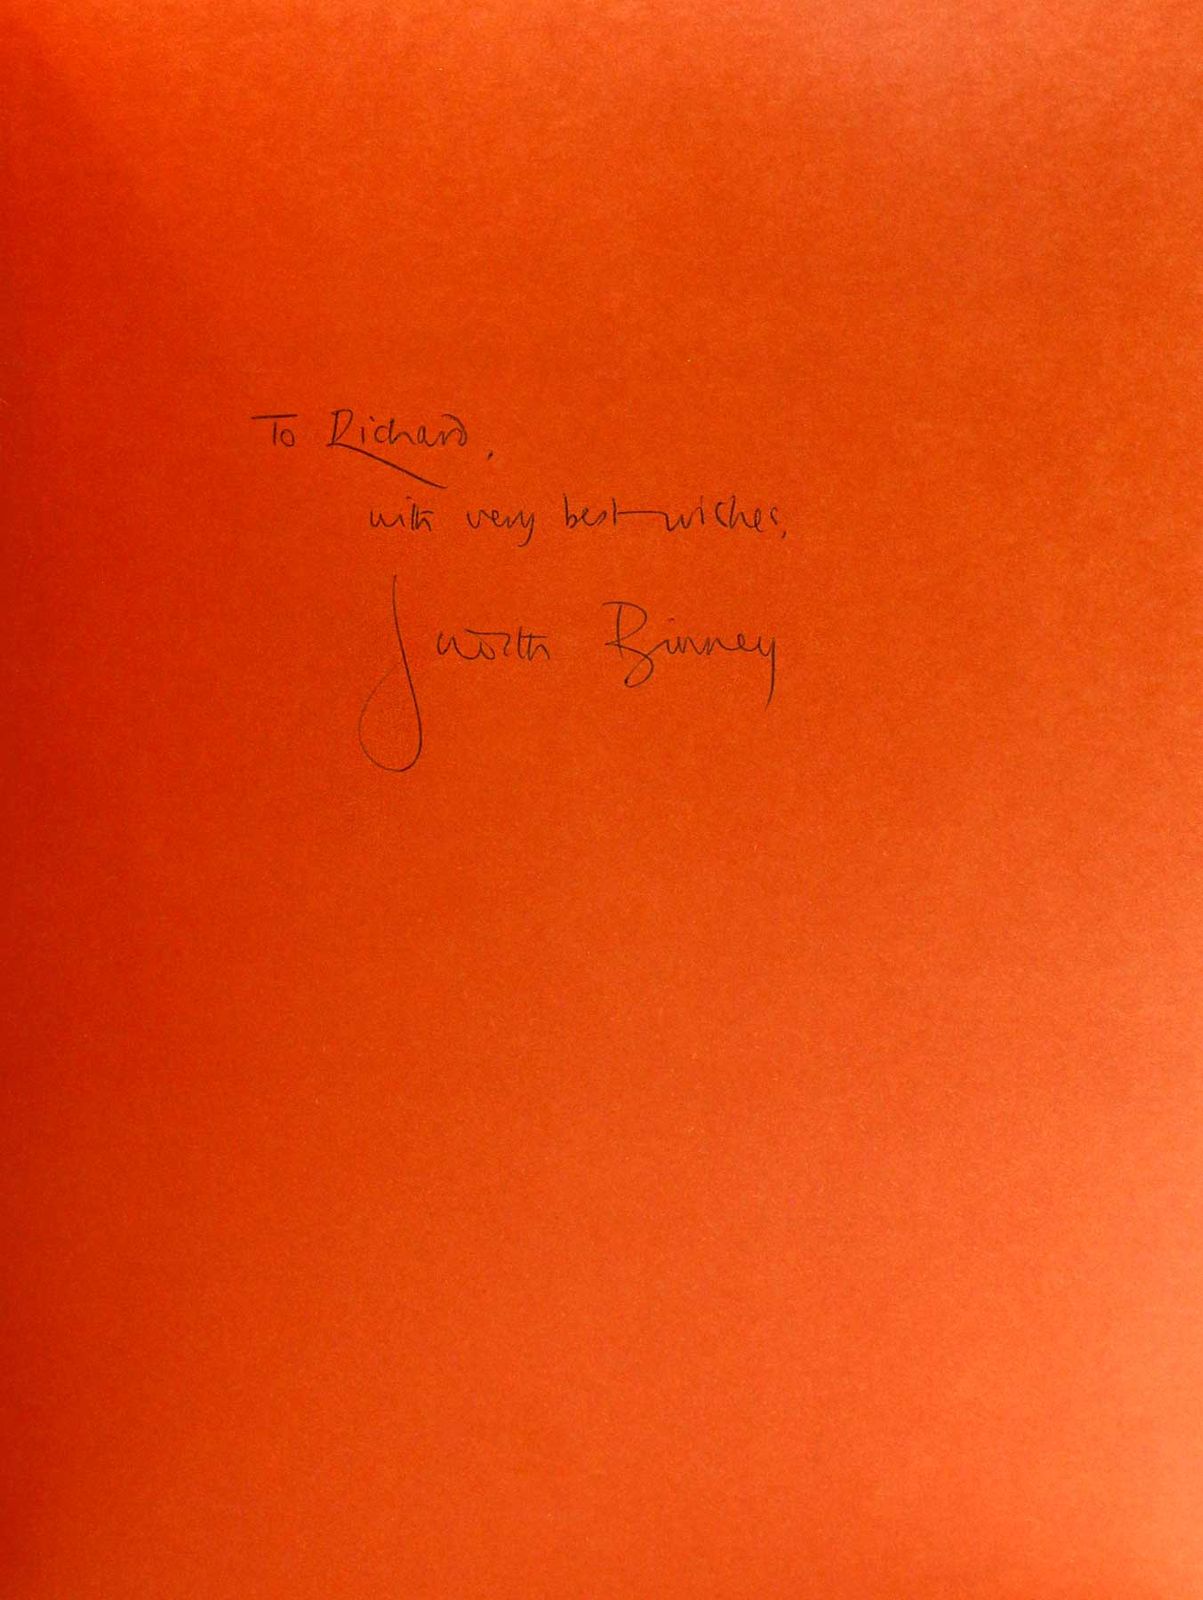 To Richard,
with very best wishes,
Judith Binney